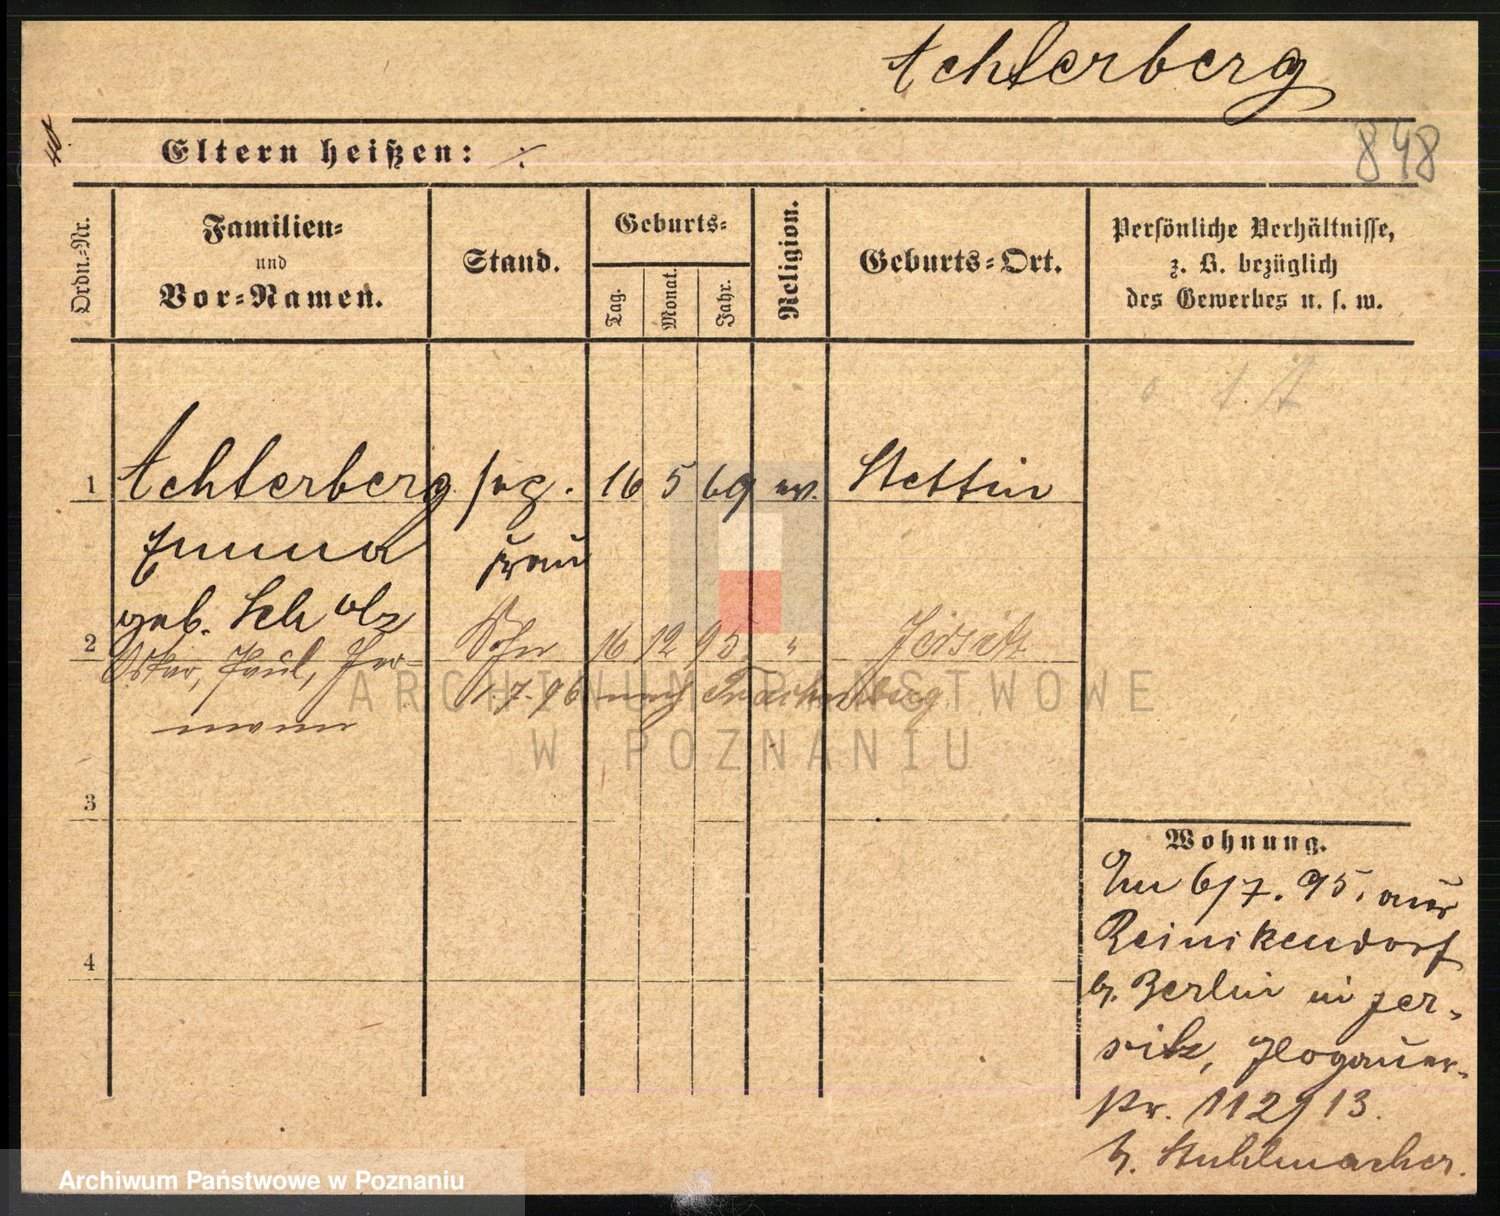 Achterberg
Eltern heißen: ⁒
848
Ordn.-Nr.
Familien-
und
Vor-Namen.
Stand.
Geburts-
Tag.
Monat.
Jahr.
Religion.
Geburts-Ort.
Persönliche Verhältnisse,
z. B. bezüglich
des Gewerbes u. s. w.
1 Achterberg 16 5 69 ev. Stettin
Emma frau
geb. Scholz
2 Oskar, Paul, Her- Sohn 16 12 95 " Jersitz
mann 1.7.96 nach Trachenberg
3
4
Wohnung.
Am 6/7. 95. aus
Reinikendorf
b. Berlin in Jer-
sitz, Glogauer-
str. 112/13.
b. Stuhlmacher.
ARCHIWUM PAŃSTWOWE
W POZNANIU
Archiwum Państwowe w Poznaniu